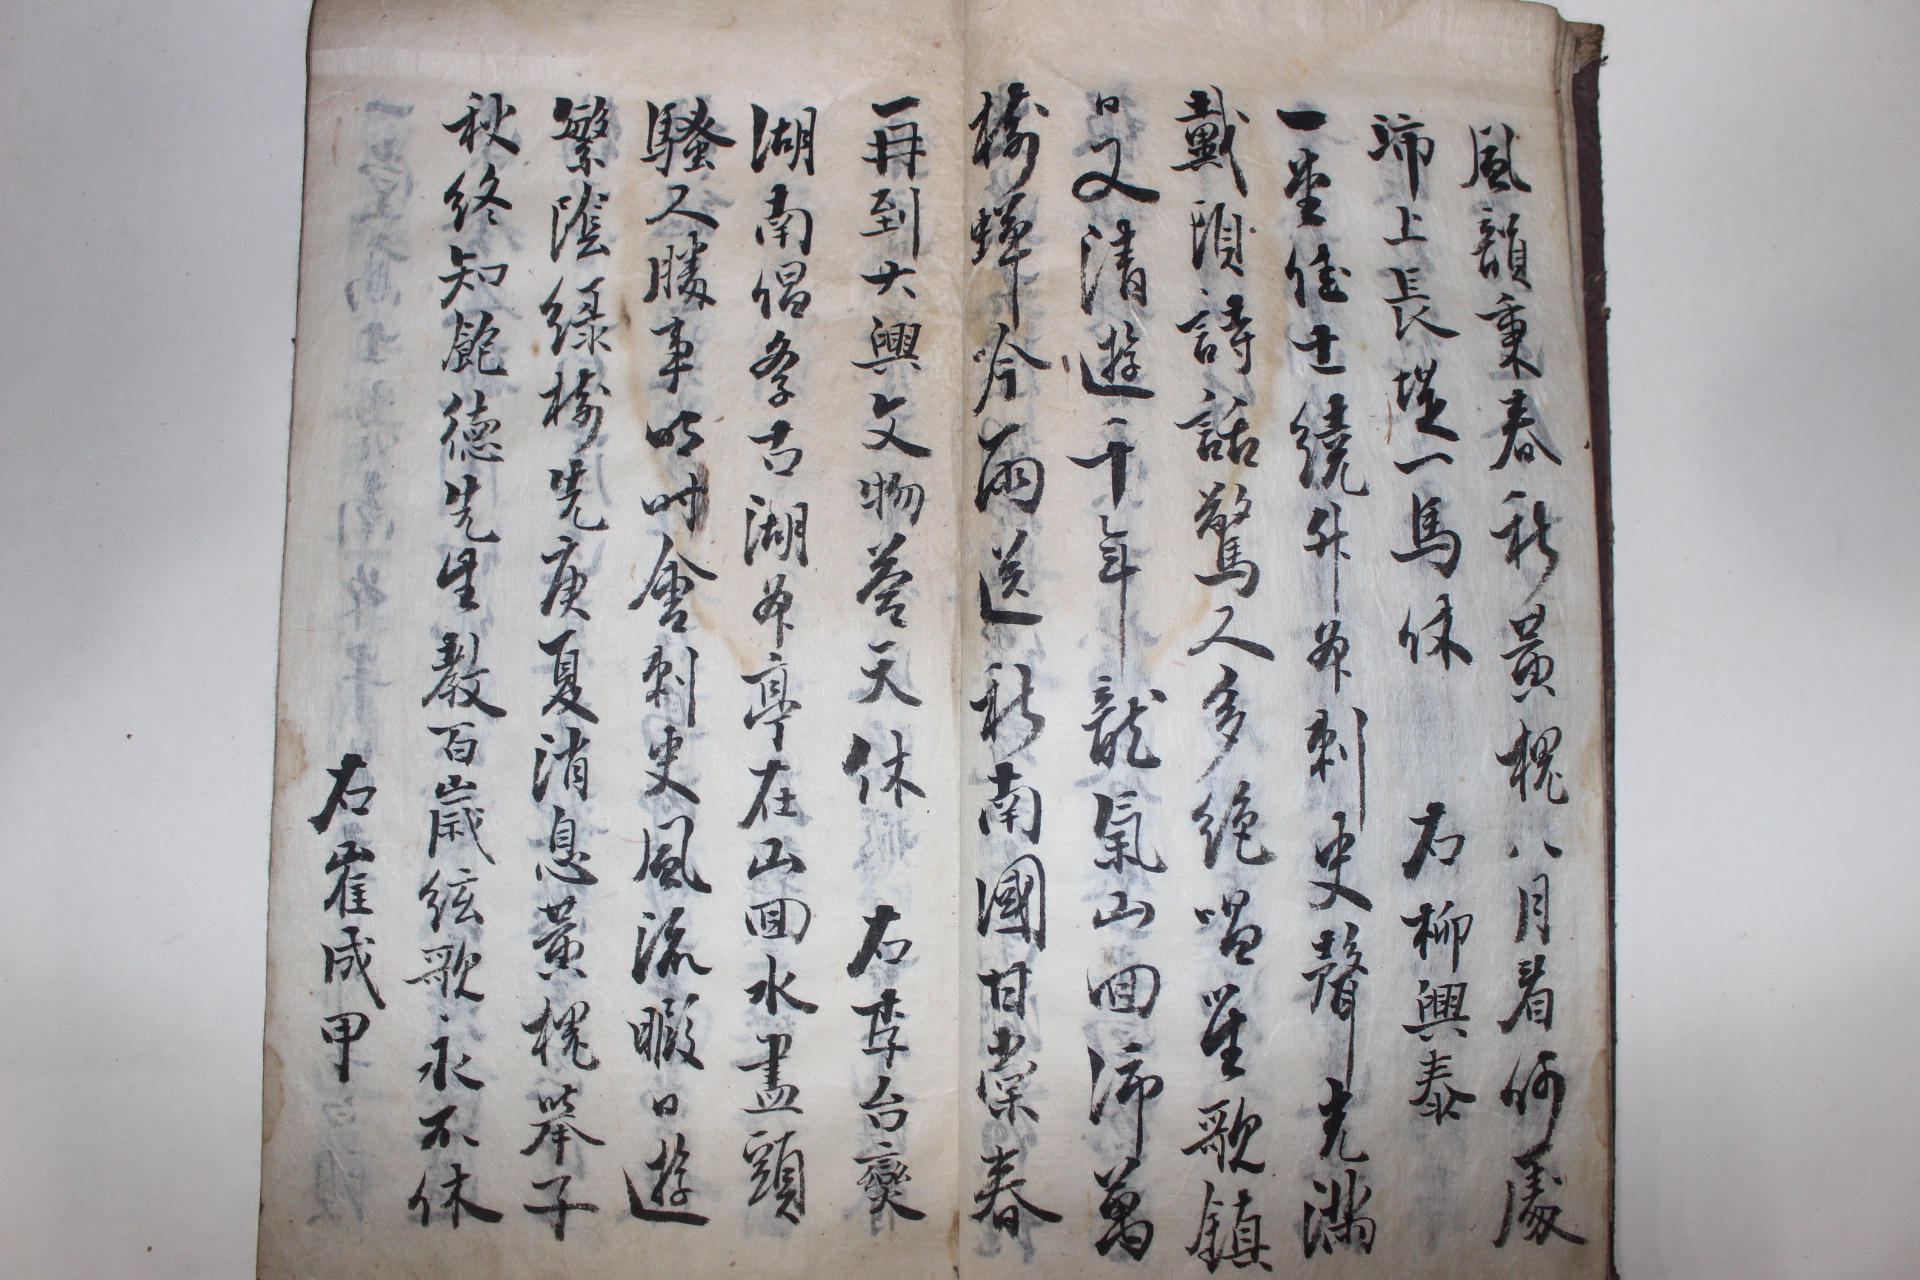 風韻秉春秋黃槐八月着何處
沛上長堤一馬休 右柳興泰
一堂佳士繞升布刺史聲光滿
戴頭詩話驚人多絶唱笙歌鎮
日又淸遊千年龍氣山回沛萬
樹蟬吟雨送秋南國甘棠春
一再到大興文物荅天休 右李台奭
湖南倡夆古湖布亭在山回水盡頭
騷人勝事明時會刺史風流暇日遊
繁陰綠樹先庚夏消息黃槐擧子
秋終知飽德先生敎百歲絃歌永不休
右崔成甲